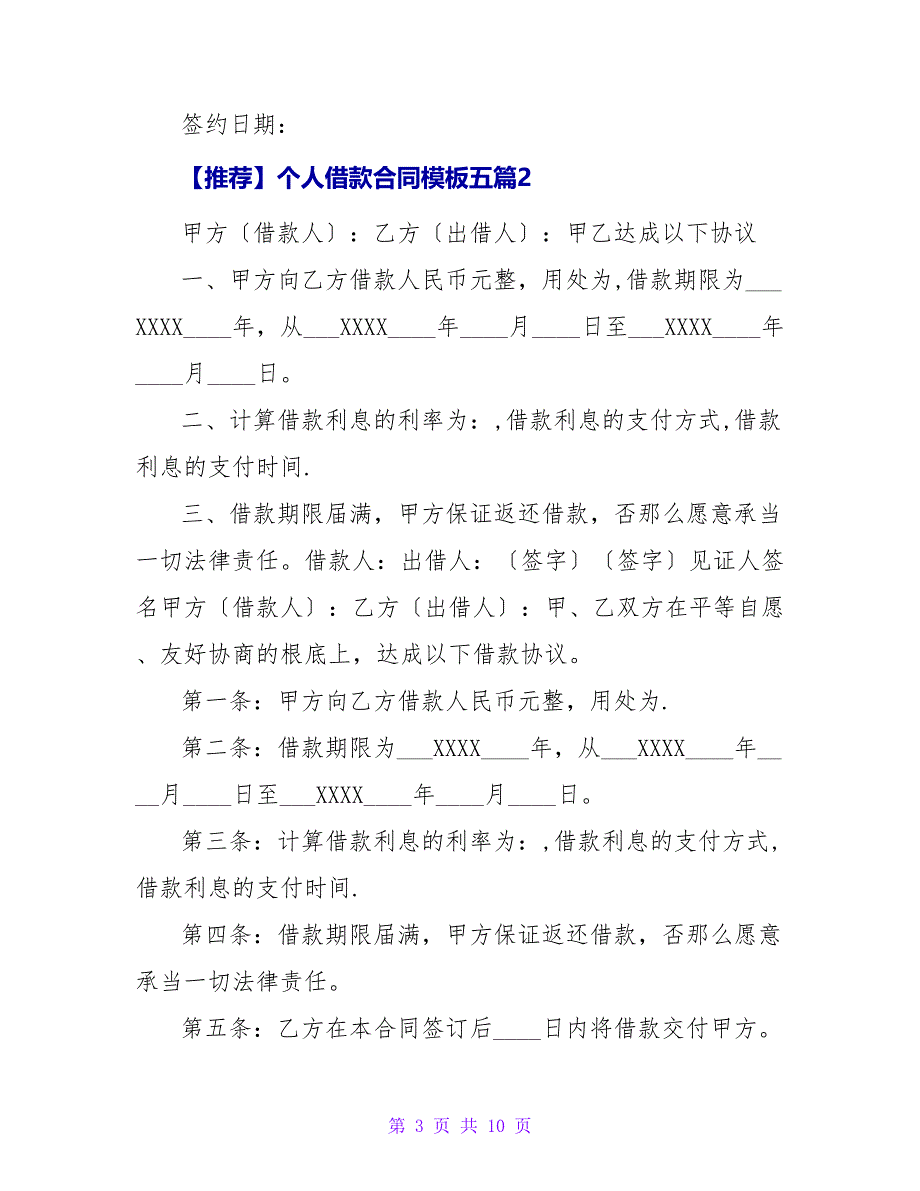 签约日期：
【推荐】个人借款合同模板五篇2
甲方〔借款人〕：乙方〔出借人〕：甲乙达成以下协议
一、甲方向乙方借款人民币元整，用处为,借款期限为___
XXXX____年，从___XXXX____年____月____日至___XXXX____年
____月____日。
二、计算借款利息的利率为：,借款利息的支付方式,借款
利息的支付时间.
三、借款期限届满，甲方保证返还借款，否那么愿意承当
一切法律责任。借款人：出借人：〔签字〕〔签字〕见证人签
名甲方〔借款人〕：乙方〔出借人〕：甲、乙双方在平等自愿
、友好协商的根底上，达成以下借款协议。
第一条：甲方向乙方借款人民币元整，用处为.
第二条：借款期限为___XXXX____年，从___XXXX____年__
__月____日至___XXXX____年____月____日。
第三条：计算借款利息的利率为：,借款利息的支付方式,
借款利息的支付时间.
第四条：借款期限届满，甲方保证返还借款，否那么愿意
承当一切法律责任。
第五条：乙方在本合同签订后____日内将借款交付甲方。
第 3 页 共 10 页